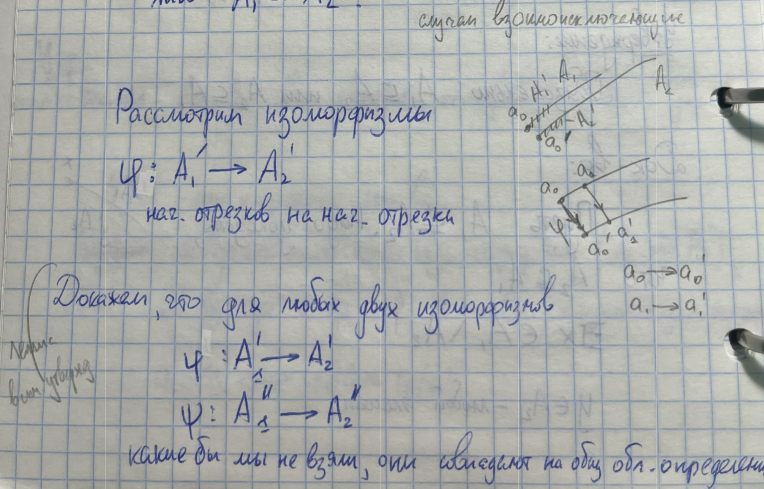 случаи взаимоисключающие
Рассмотрим изоморфизмы
φ: A₁' → A₂'
нач. отрезков на нач. отрезки
A₁' A₁ A₂
a₀ A₂'
a₀'
a₀ a₁
φ a₀' a₁'
a₀ → a₀'
a₁ → a₁'
Докажем, что для любых двух изоморфизмов
φ: A₁' → A₂'
ψ: A₁'' → A₂''
какие бы мы не взяли, они совпадают на общ обл. определени